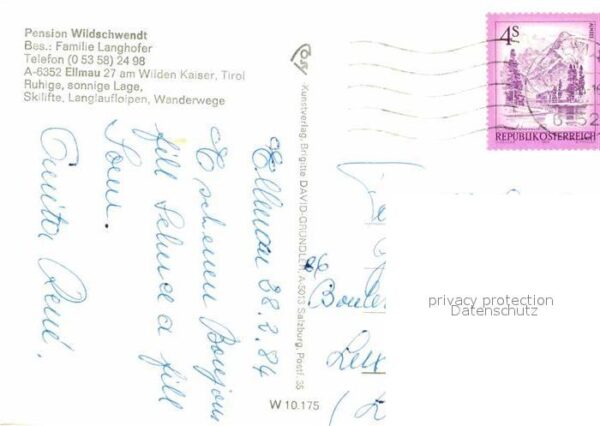 Pension Wildschwendt
Bes.: Familie Langhofer
Telefon (0 53 58) 24 98
A-6352 Ellmau 27 am Wilden Kaiser, Tirol
Ruhige, sonnige Lage,
Skilifte, Langlaufloipen, Wanderwege
Cosy
Kunstverlag, Brigitte DAVID-GRÜNDLER, A-5013 Salzburg, Postf. 35
W 10.175
4S
REPUBLIK ÖSTERREICH
Ellmau 28.2.84
E schenen Bonjour
fill Schnee a fill
Sonn.
René.
86
Boule
Lux
privacy protection
Datenschutz